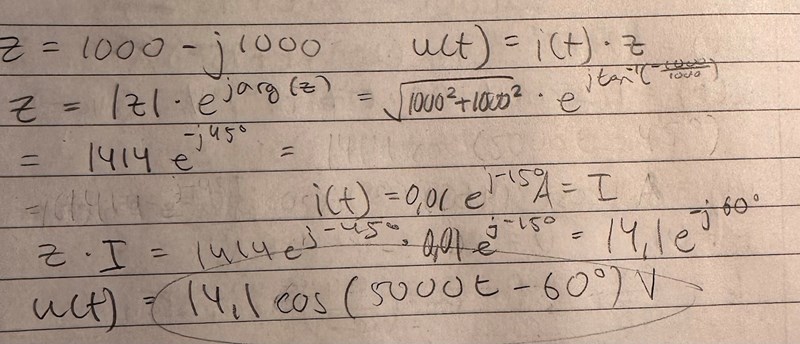 z = 1000 - j1000 u(t) = i(t) · z
z = |z| · e^{j arg(z)} = √(1000² + 1000²) · e^{j tan⁻¹(-1000/1000)}
= 1414 e^{-j45°} =
i(t) = 0,01 e^{j-15°} A = I
z · I = 1414 e^{j-45°} · 0,01 e^{j-15°} = 14,1 e^{-j60°}
u(t) = 14,1 cos (5000t - 60°) V